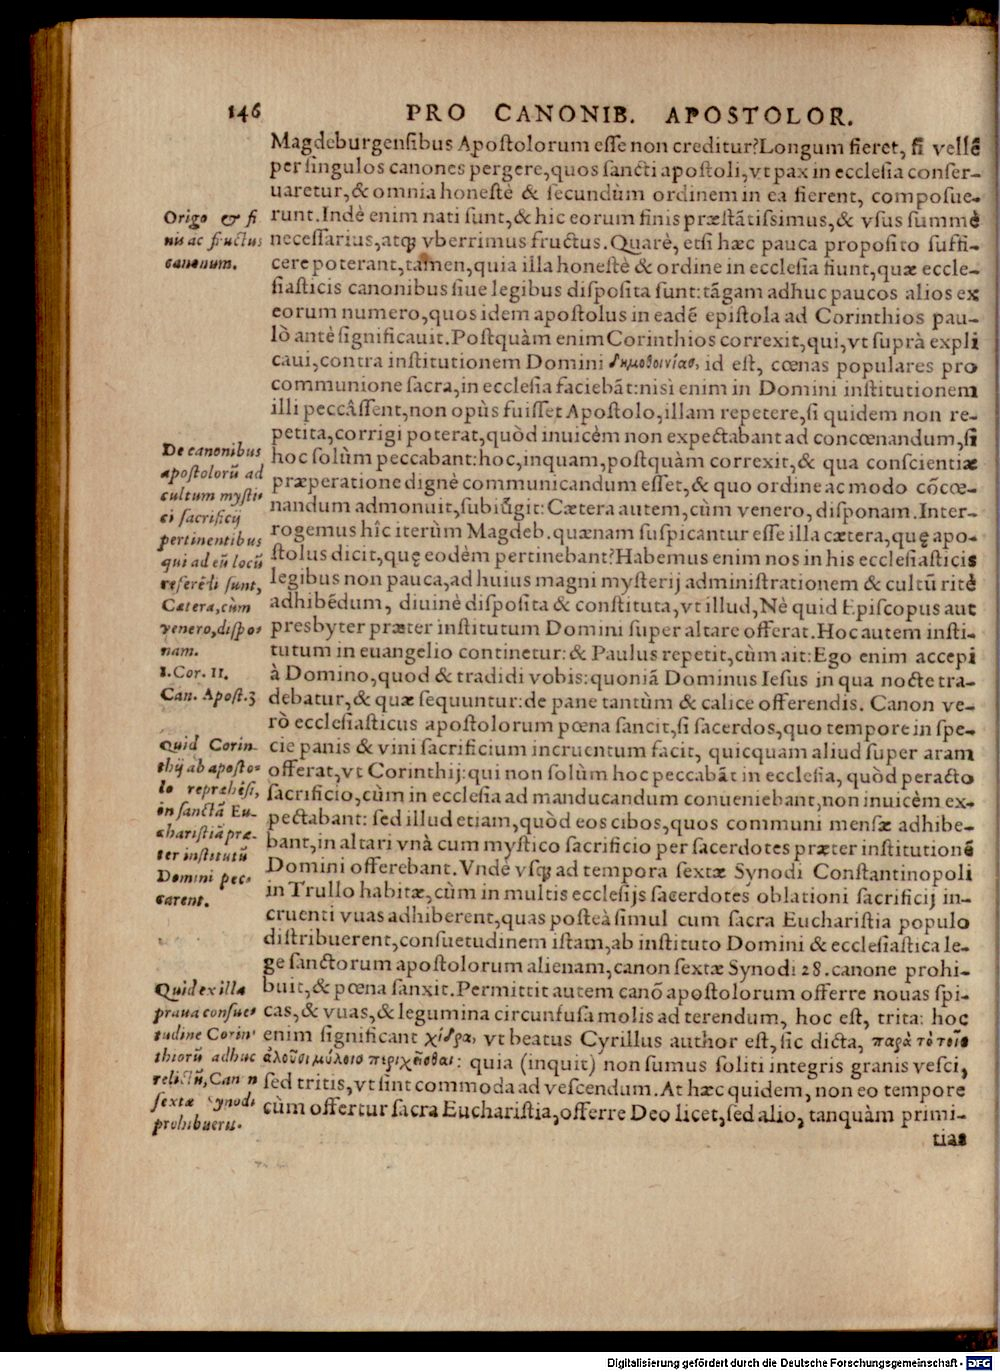 146
PRO CANONIB. APOSTOLOR.
Magdeburgensibus Apostolorum esse non creditur? Longum fieret, si vellē
per singulos canones pergere, quos sancti apostoli, vt pax in ecclesia conser-
uaretur, & omnia honestè & secundùm ordinem in ea fierent, composue-
runt. Indè enim nati sunt, & hic eorum finis præstātissimus, & vsus summè
necessarius, atq; vberrimus fructus. Quarè, etsi hæc pauca proposito suffi-
cere poterant, tamen, quia illa honestè & ordine in ecclesia fiunt, quæ eccle-
siasticis canonibus siue legibus disposita sunt: tāgam adhuc paucos alios ex
eorum numero, quos idem apostolus in eadē epistola ad Corinthios pau-
lò antè significauit. Postquàm enim Corinthios correxit, qui, vt suprà expli
caui, contra institutionem Domini δημοθοινίας, id est, cœnas populares pro
communione sacra, in ecclesia faciebāt: nisi enim in Domini institutionem
illi peccâssent, non opùs fuisset Apostolo, illam repetere, si quidem non re-
petita, corrigi poterat, quòd inuicèm non expectabant ad concœnandum, si
hoc solùm peccabant: hoc, inquam, postquàm correxit, & qua conscientiæ
præperatione dignè communicandum esset, & quo ordine ac modo cōcœ-
nandum admonuit, subiūgit: Cætera autem, cùm venero, disponam. Inter-
rogemus hîc iterùm Magdeb. quænam suspicantur esse illa cætera, quę apo-
stolus dicit, quę eodèm pertinebant? Habemus enim nos in his ecclesiasticis
legibus non pauca, ad huius magni mysterij administrationem & cultū ritè
adhibēdum, diuinè disposita & constituta, vt illud, Nè quid Episcopus aut
presbyter præter institutum Domini super altare offerat. Hoc autem insti-
tutum in euangelio continetur: & Paulus repetit, cùm ait: Ego enim accepi
à Domino, quod & tradidi vobis: quoniā Dominus Iesus in qua nocte tra-
debatur, & quæ sequuntur: de pane tantùm & calice offerendis. Canon ve-
rò ecclesiasticus apostolorum pœna sancit, si sacerdos, quo tempore in spe-
cie panis & vini sacrificium incruentum facit, quicquam aliud super aram
offerat, vt Corinthij: qui non solùm hoc peccabāt in ecclesia, quòd peracto
sacrificio, cùm in ecclesia ad manducandum conueniebant, non inuicèm ex-
pectabant: sed illud etiam, quòd eos cibos, quos communi mensæ adhibe-
bant, in altari vnà cum mystico sacrificio per sacerdotes præter institutionē
Domini offerebant. Vndè vsq; ad tempora sextæ Synodi Constantinopoli
in Trullo habitæ, cùm in multis ecclesijs sacerdotes oblationi sacrificij in-
cruenti vuas adhiberent, quas posteà simul cum sacra Eucharistia populo
distribuerent, consuetudinem istam, ab instituto Domini & ecclesiastica le-
ge sanctorum apostolorum alienam, canon sextæ Synodi 28. canone prohi-
buit, & pœna sanxit. Permittit autem canō apostolorum offerre nouas spi-
cas, & vuas, & legumina circunfusa molis ad terendum, hoc est, trita: hoc
enim significant χίδρα, vt beatus Cyrillus author est, sic dicta, παρὰ τὸ τοῖς
ἀλοῦσι μύλοις περιχεῖσθαι: quia (inquit) non sumus soliti integris granis vesci,
sed tritis, vt sint commoda ad vescendum. At hæc quidem, non eo tempore
cùm offertur sacra Eucharistia, offerre Deo licet, sed alio, tanquàm primi-
tias
Origo & fi
nis ac fructus
canonum.
De canonibus
apostolorū ad
cultum mysti-
ci sacrificij
pertinentibus
qui ad eū locū
referēdi sunt,
Cætera, cùm
venero, dispo-
nam.
1. Cor. 11.
Can. Apost. 3
Quid Corin-
thij ab aposto-
lo repræhēsi,
in sanctā Eu-
charistiā præ-
ter institutū
Domini pec-
carent.
Quid ex illa
praua consue-
tudine Corin-
thiorū adhuc
relictū, Can n
sextæ Synodi
prohibuerū.
Digitalisierung gefördert durch die Deutsche Forschungsgemeinschaft - DFG